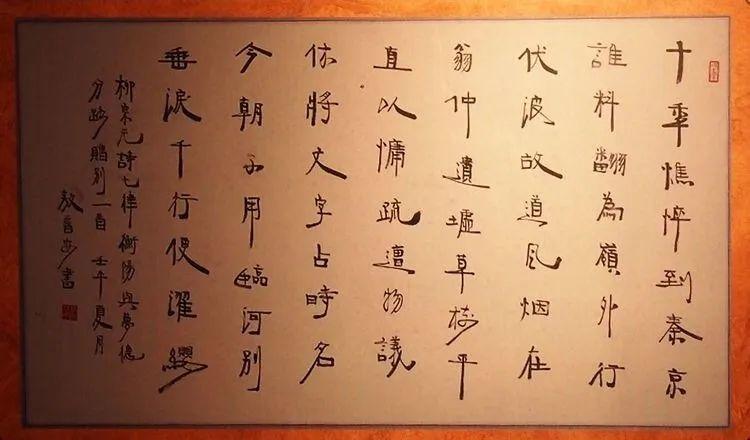 十年憔悴到秦京
誰料翻為嶺外行
伏波故道风烟在
翁仲遺墟草樹平
直以慵疏遭物議
休將文字占時名
今朝不用臨河別
垂淚千行便濯纓
柳宗元詩七律衡陽與夢得
分路贈別一首壬午夏月
敖普安書